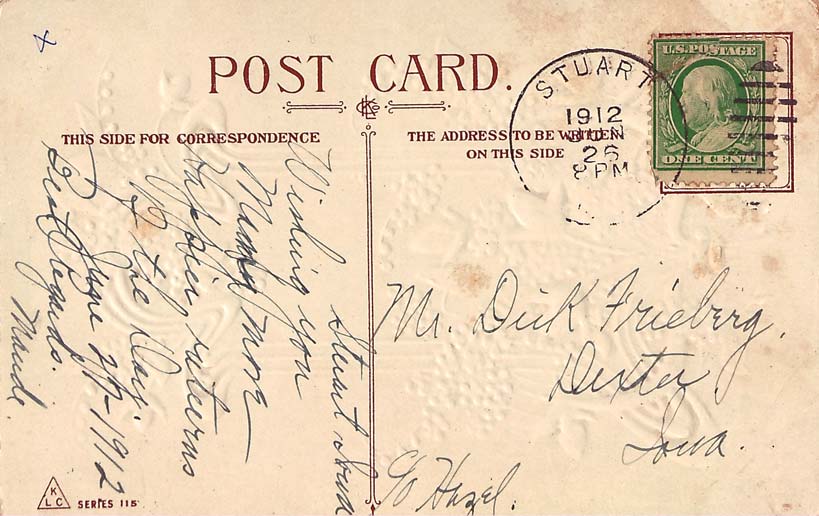 POST CARD.
KLC
THIS SIDE FOR CORRESPONDENCE
THE ADDRESS TO BE WRITTEN
ON THIS SIDE
STUART
1912
JUN
26
8 PM
U.S. POSTAGE
ONE CENT
Stuart
Wishing you
Many more
happier returns
of the Day.
June 27-1912
Best Regards.
Maude
Mr. Dick Frieberg,
Dexter,
Iowa.
c/o Hazel.
K
L C
SERIES 115